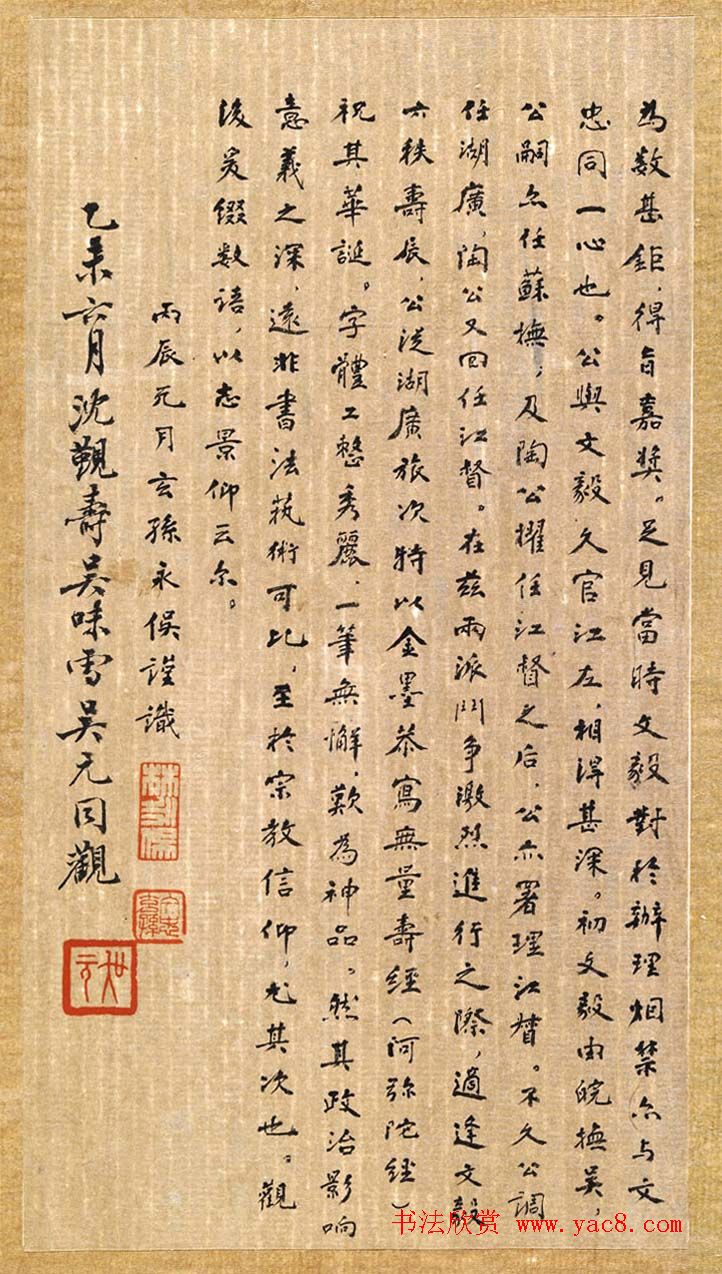 為数甚鉅，得旨嘉奬。足見當時文毅對於辦理烟禁，亦与文
忠同一心也。公與文毅久官江左，相得甚深。初文毅由皖撫吴，
公嗣亦任蘇撫，及陶公擢任江督之后，公亦署理江督。不久公調
任湖廣，陶公又回任江督。在兹兩派鬥争激烈進行之際，適逢文毅
六秩壽辰，公從湖廣旅次特以金墨恭寫無量壽經（阿弥陀經）
祝其華誕。字體工整秀麗，一筆無懈，歎為神品。然其政治影响
意義之深，遠非書法執術可比，至於宗教信仰，尤其次也。觀
後爰缀数語，以志景仰云尔。
丙辰元月玄孫永俁謹識
乙未六月沈覲壽吴味雪吴元同觀
书法欣赏 www.yac8.com